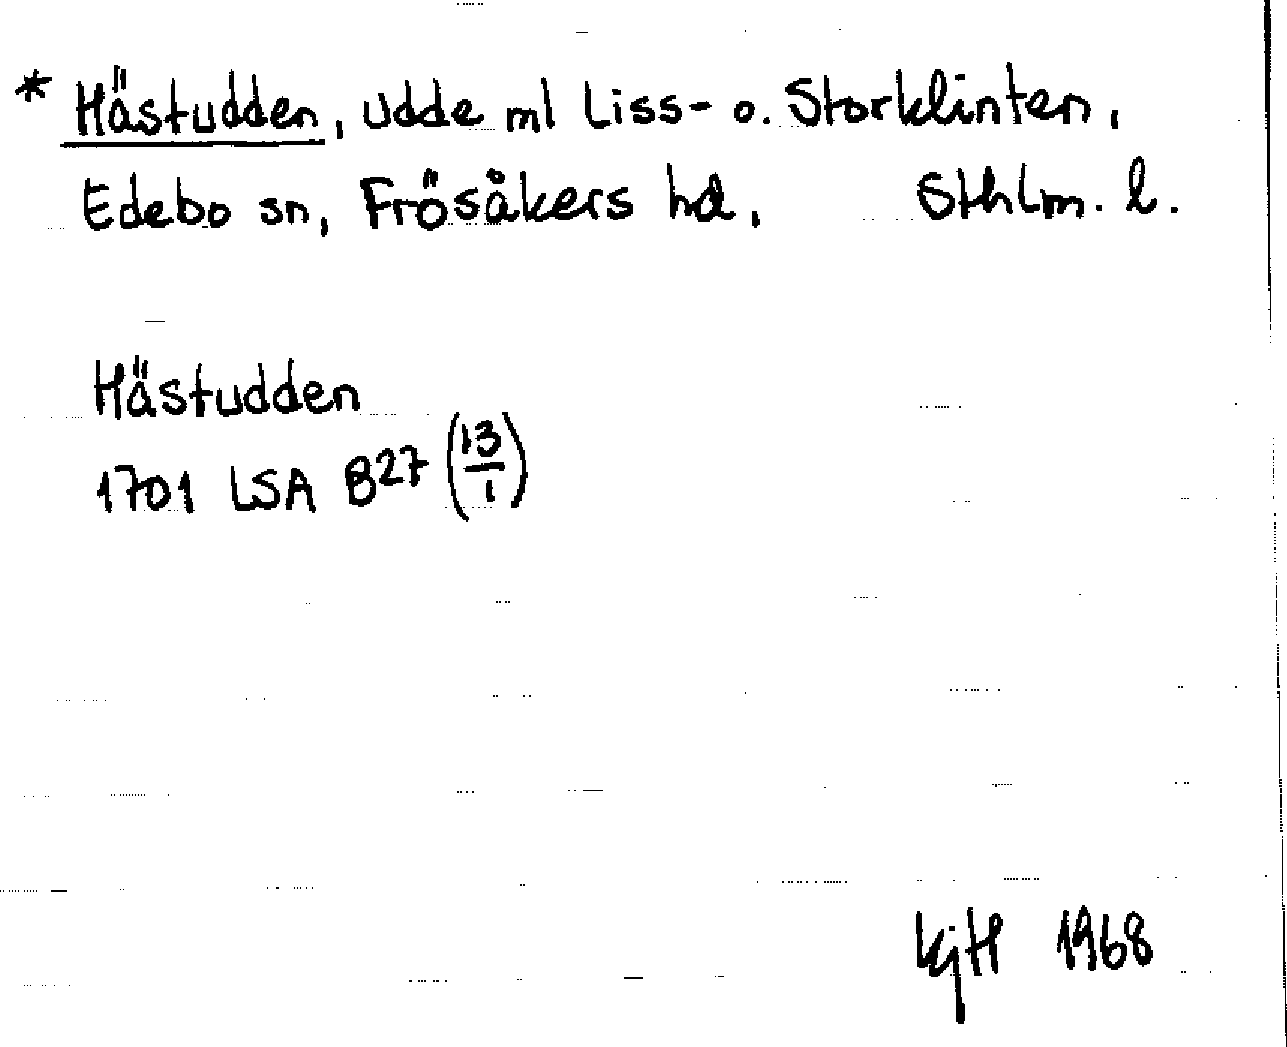 * Hästudden, udde ml Liss- o. Storklinten,
Edebo sn, Frösåkers hd, Sthlm. l.
Hästudden
1701 LSA B27 (13/1)
KjH 1968